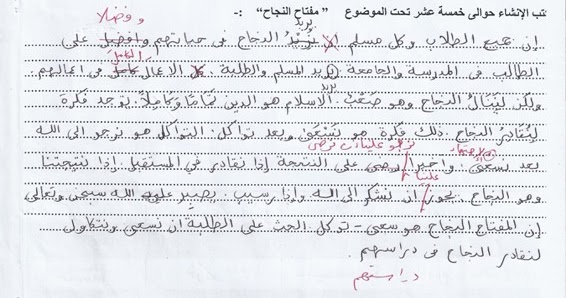 تب الإنشاء حوالى خمسة عشر تحت الموضوع " مفتاح النجاح " :-
وفضلا
يريد
إن جميع الطلاب وكل مسلم لا يُرِيْدُ النجاح في حياتهم وافضل على
الكامل
الطالب في المدرسة والجامعة يريد المسلم والطلبة. كل الاعمال كامل في اعمالهم
يريد
ولكن لِيَنَالُ النجاح وهو صَعْبٌ. الاسلام هو الدين تَامًا وَكَامِلًا. يوجد فكرة
لِنُقَادِرُ النجاح. ذلك فكرة هو نَسْعَى وبعد تواكل. التواكل هو نرجو الى الله
علينا ان نرضى
بعد نسعى. واخيرا نرضى على النتيجة إذا نقادر في المستقبل. إذا نتيجتنا
علينا
وهو النجاح. يجوز ان نشكر الى الله وإذا رسيب. يصبر عليه الله سبحن وتعالى
إن المفتاح النجاح هو سعى - توكل الحث على الطلبة ان نسعى ونتكاول
لنقادر النجاح في دراسهم.
دراستهم